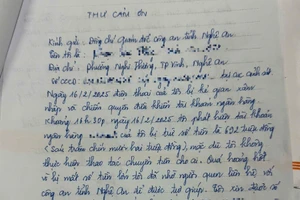 THƯ CẢM ƠN
Kính gửi: Đồng chí Giám đốc công an tỉnh Nghệ An
Tên tôi là:
Địa chỉ: Phường Nghi Phong, TP Vinh, Nghệ An
Số CCCD:
Ngày 16/2/2025 điện thoại của tôi bị kẻ gian xâm
nhập và chiếm quyền điều khiển tài khoản ngân hàng.
khoảng 16h30p ngày 16/2/2025 tôi phát hiện tài khoản
ngân hàng của tôi bị mất số tiền là 692 triệu đồng
(Sáu trăm chín mươi hai triệu đồng), mặc dù tôi không
thực hiện thao tác chuyển tiền cho ai. Quá hoảng hốt
vì bị mất số tiền lớn tôi đã nhờ người quen liên hệ với
công an tỉnh Nghệ An để được giúp. Tôi xin được